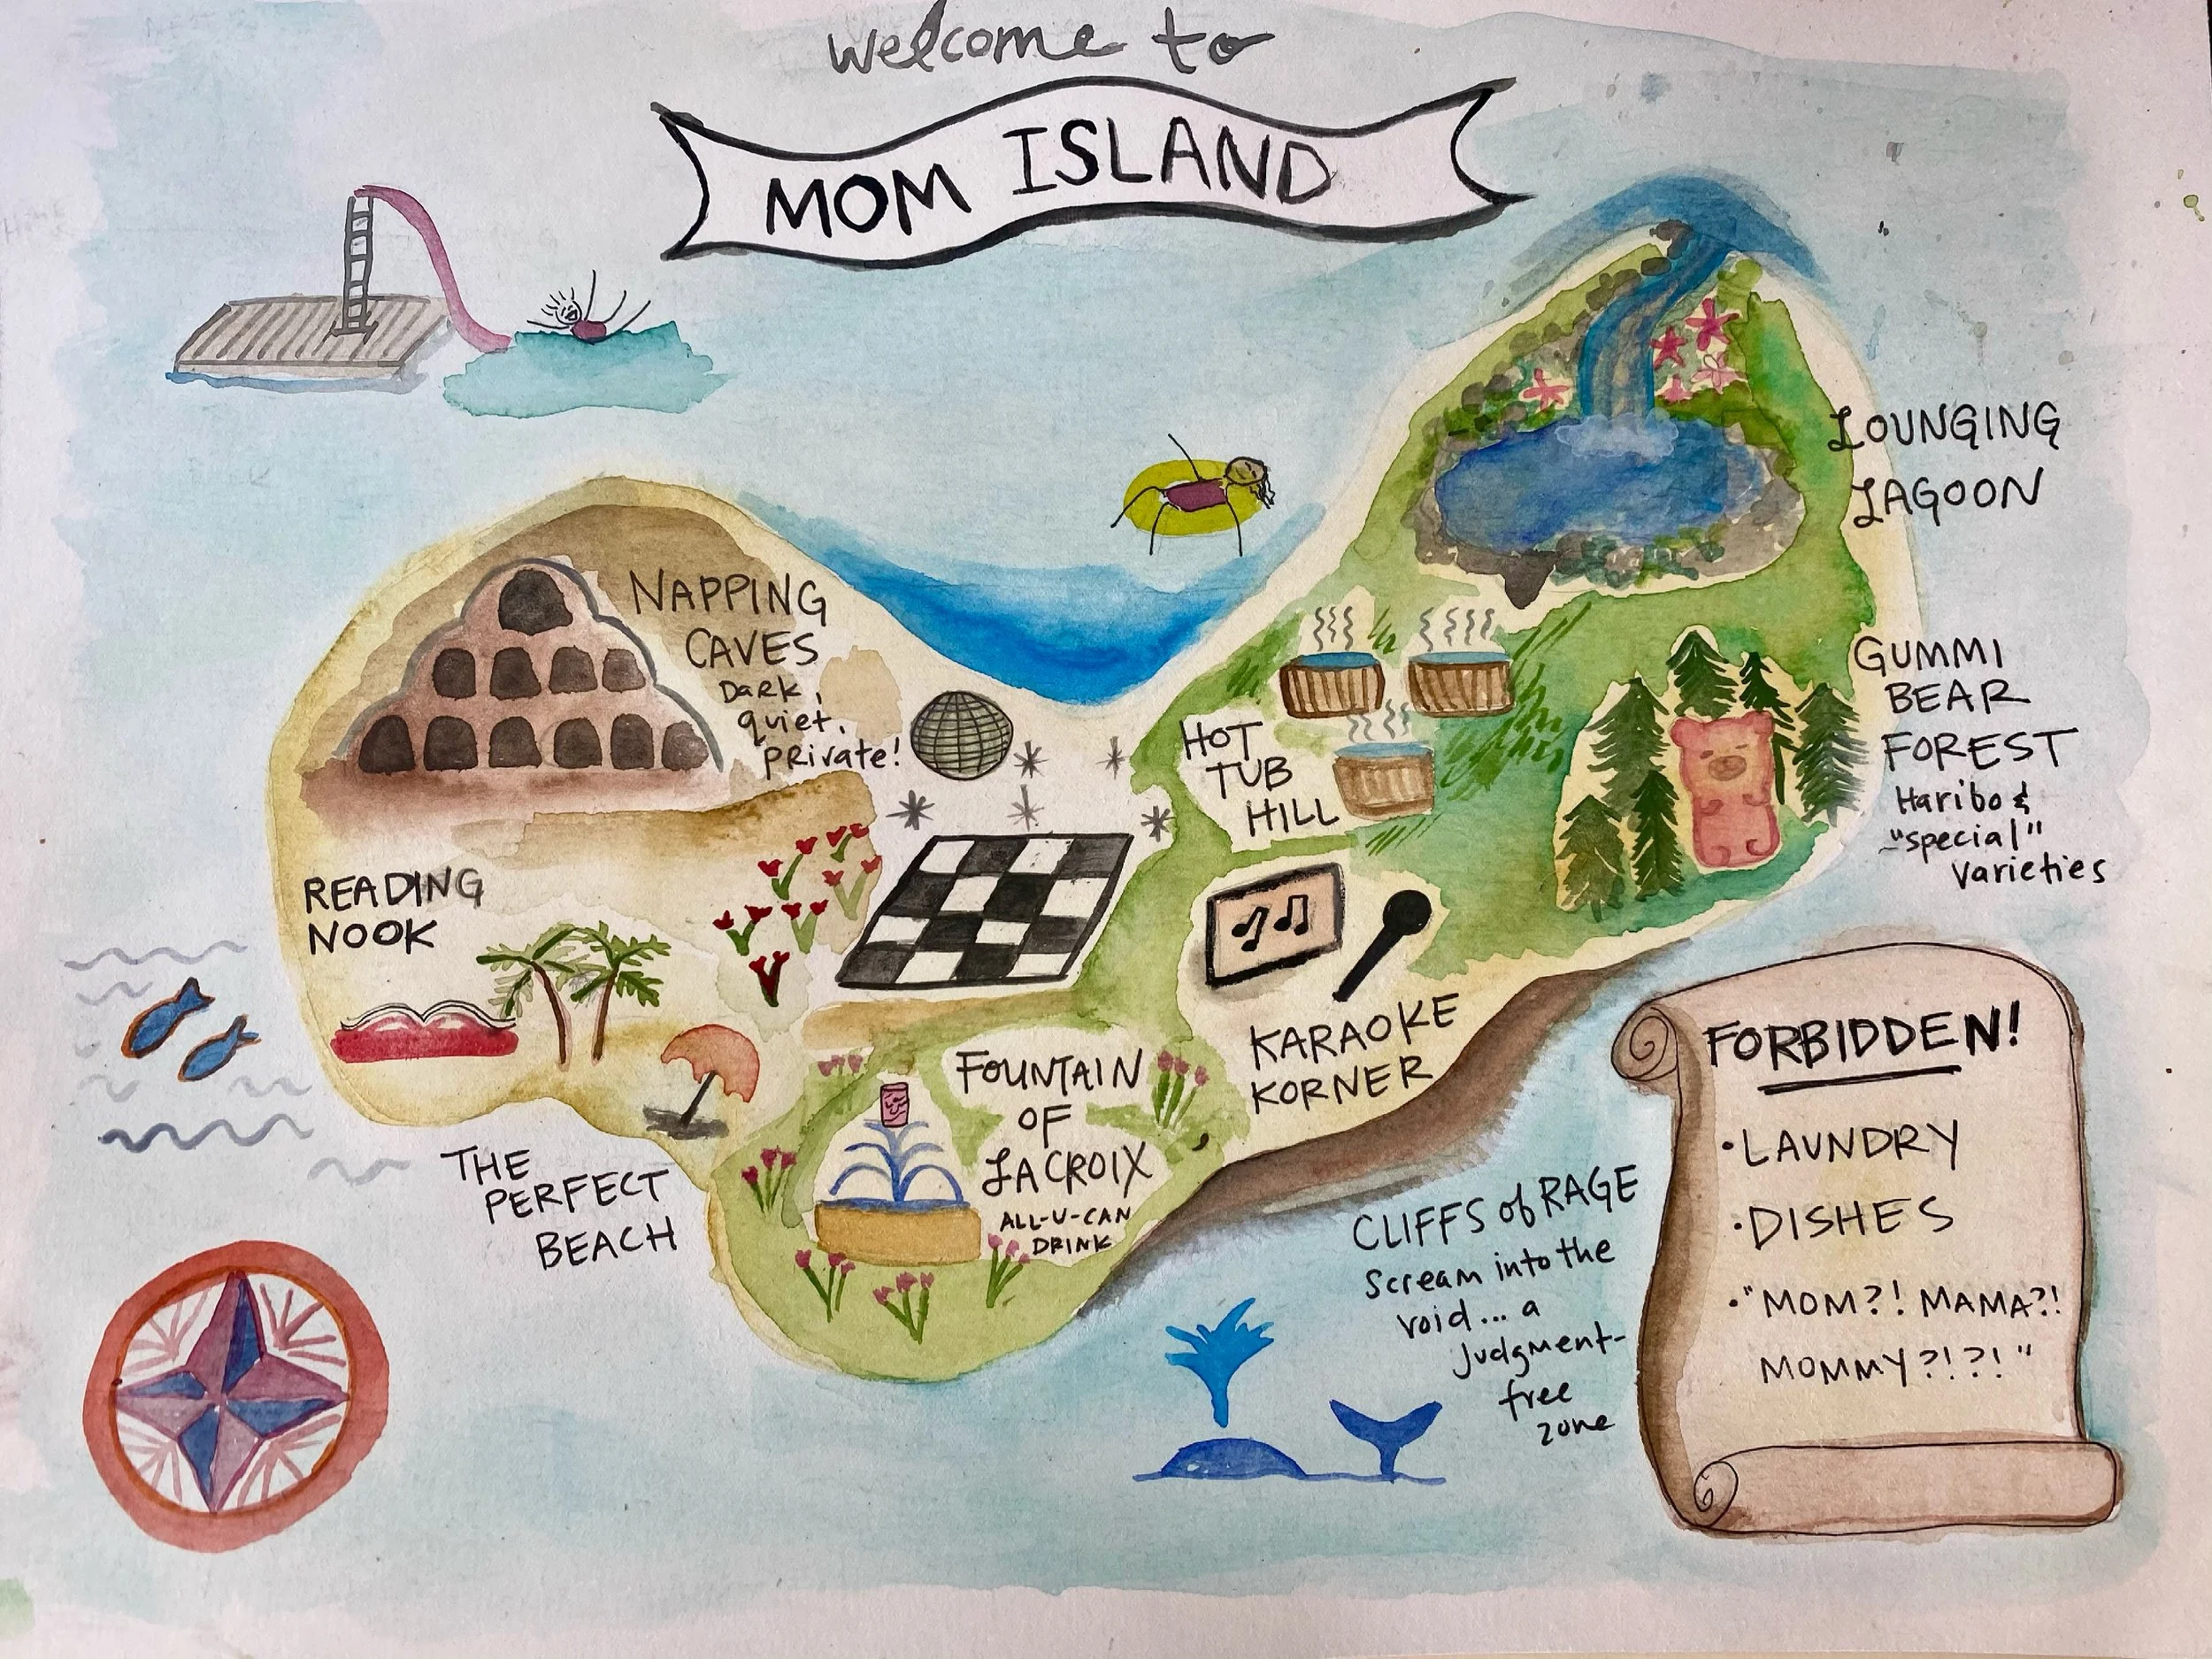 welcome to
MOM ISLAND
LOUNGING
LAGOON
NAPPING
CAVES
Dark,
quiet,
private!
GUMMI
BEAR
FOREST
Haribo &
"special"
varieties
HOT
TUB
HILL
READING
NOOK
KARAOKE
KORNER
FOUNTAIN
OF
LACROIX
ALL-U-CAN
DRINK
THE
PERFECT
BEACH
CLIFFS of RAGE
Scream into the
void... a
judgment-
free
zone
FORBIDDEN!
• LAUNDRY
• DISHES
• "MOM?! MAMA?!
MOMMY?!?!"